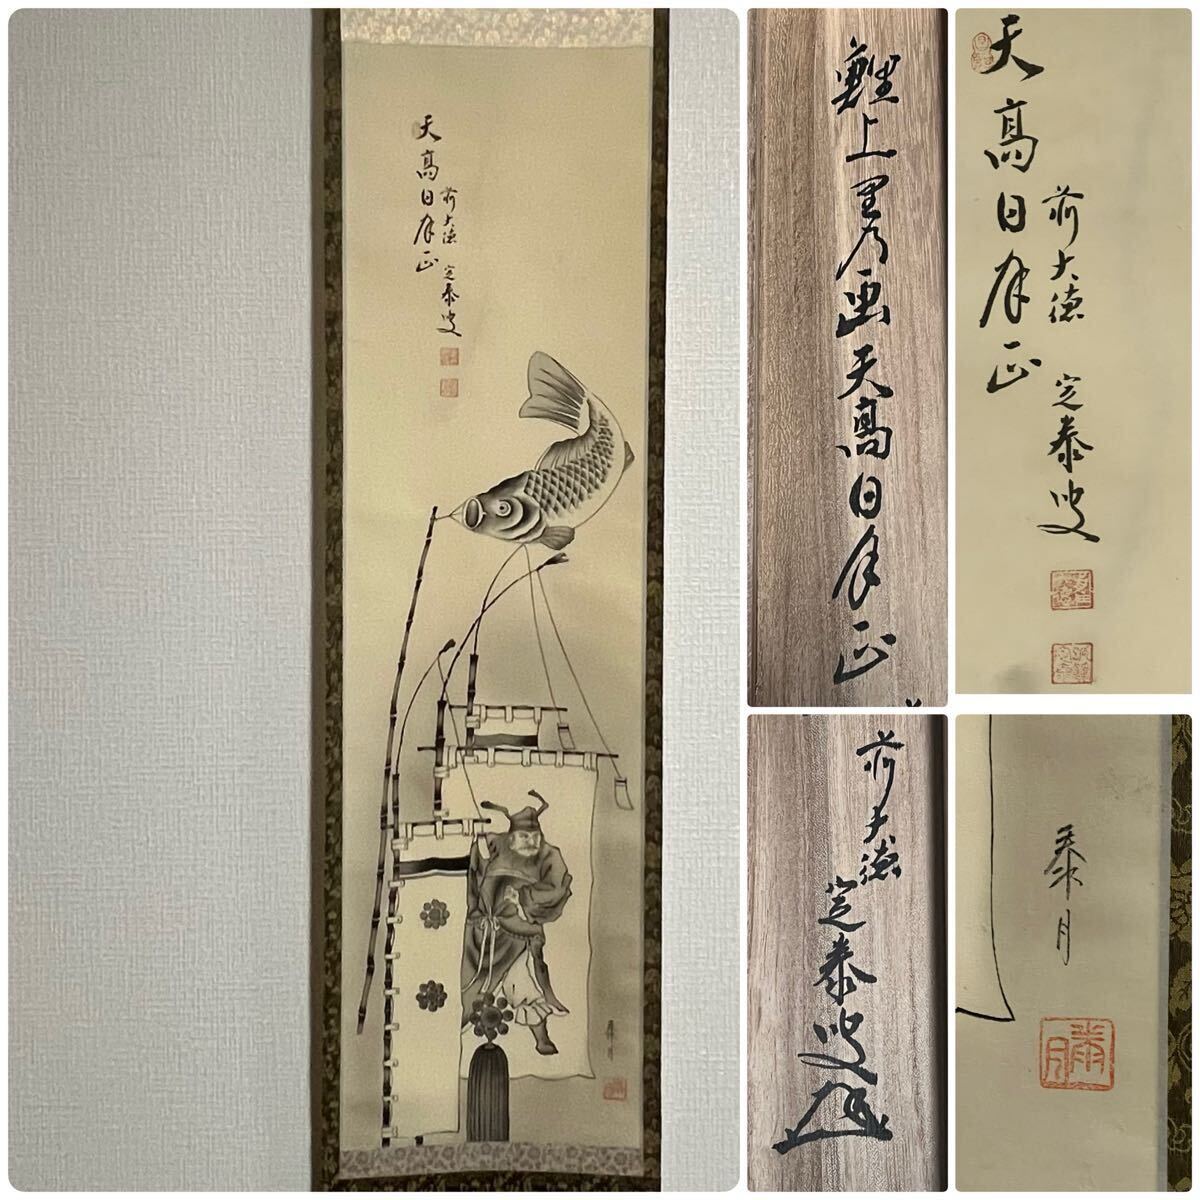 天高日月正
前大徳 定泰叟
鯉上里乃画天高日月正
天高日月正
前大徳 定泰叟
前大徳
定泰叟
泰月
泰月